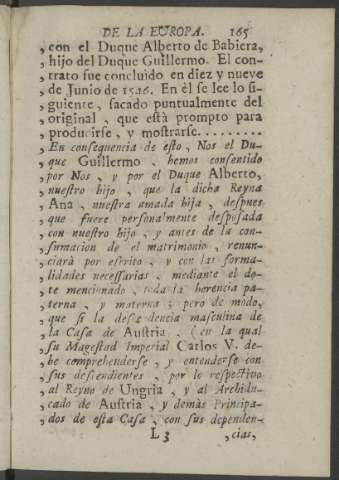 DE LA EUROPA. 165
, con el Duque Alberto de Babiera,
, hijo del Duque Guillermo. El con-
, trato fue concluido en diez y nueve
, de Junio de 1546. En èl se lee lo si-
, guiente, sacado puntualmente del
, original, que està prompto para
, producirse, y mostrarse.........
, En consequencia de esto, Nos el Du-
, que Guillermo, hemos consentido
, por Nos, y por el Duque Alberto,
, nuestro hijo, que la dicha Reyna
, Ana, nuestra amada hija, despues
, que fuere personalmente desposada
, con nuestro hijo, y antes de la con-
, sumacion de el matrimonio, renun-
, ciarà por escrito, y con las forma-
, lidades necessarias, mediante el do-
, te mencionado, toda la herencia pa-
, terna, y materna; pero de modo,
, que si la descendencia masculina de
, la Casa de Austria, (en la qual
, su Magestad Imperial Carlos V. de-
, be comprehenderse, y entenderse con
, sus descendientes, por lo respectivo
, al Reyno de Ungria, y al Archidu-
, cado de Austria, y demàs Principa-
, dos de esta Casa, con sus dependen-
L 3 , cias,